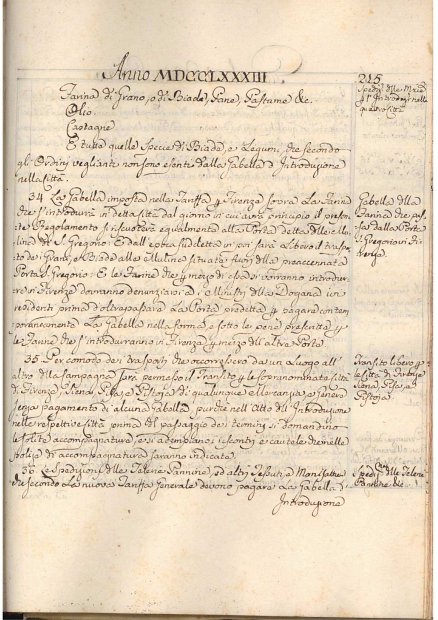 Anno MDCCLXXXIII
215
Farina di Grano, o di Biade, Pane, Pastume &c
Olio
Castagne
E tutte quelle Specie di Biada, e Legumi, che secondo
gl'Ordini veglianti non sono esenti dalla Gabella d'Introduzione
nella Città.
34 La Gabella imposta nella Tariffa di Firenze sopra La Farina
che s'introdurrà in detta Città dal giorno in cui avrà principio il presen-
te Regolamento si riscuoterà egualmente alla Porta detta delle Mu-
lina di S. Gregorio: E dall'epoca suddetta in poi sarà Libero il traspor-
to dei Grani, e Biade alle Mulina situate fuori della preaccennata
Porta S. Gregorio: E le Farine che per mezzo di essa si vorranno introdur-
re in Firenze dovranno denunziarsi a' Ministri della Dogana ivi
residenti prima d'oltrepassare La Porta predetta, e pagare contem-
poraneamente La Gabella nella forma, e sotto le pene prescritte per
le Farine che s'introdurranno in Firenze per mezzo dell'altre Porte.
35. Per comodo dei trasporti che occorressero da un Luogo all'
altro della Campagna sarà permesso il Transito per le soprannominate Città
di Firenze, Siena, Pisa, e Pistoja di qualunque Mercanzia, e genere
senza pagamento di alcuna Gabella, purchè nell'Atto dell'Introduzione
nelle respettive Città prima del passaggio dei termini si domandino
le solite accompagnature, e si adempiano i riscontri, e cautele che nelle
polizze di accompagnatura saranno indicate.
36 Le Spedizioni delle Telerie Pannine, ed altri Tessuti, e Manifatture
che secondo La nuova Tariffa Generale devono pagare La Gabella d'
Introduzione
Gabella della
Farina che pas-
sa dalla Porta
S. Gregorio in Fi-
renze.
Transito Libero per
le Città di Firenze
Siena, Pisa, e
Pistoja
Spedizni delle Telerie
Pannine &c